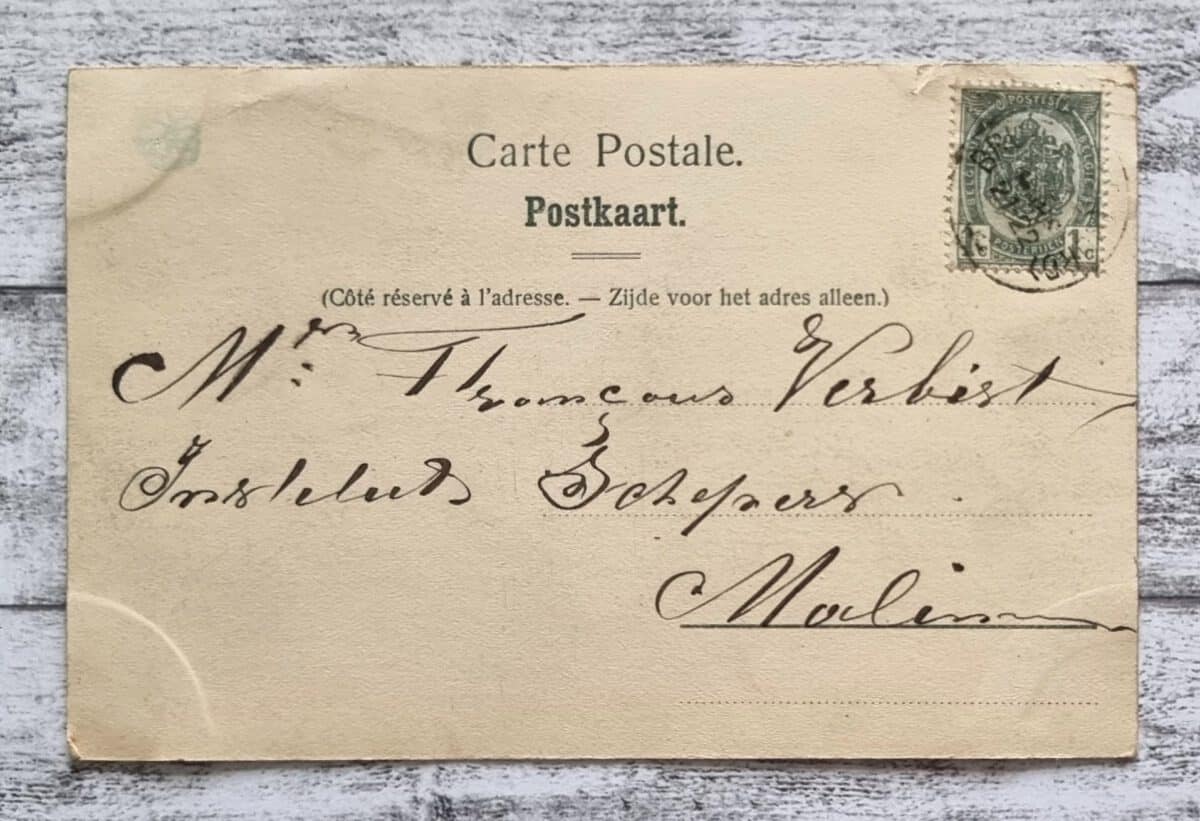 Carte Postale.
Postkaart.
(Côté réservé à l'adresse. — Zijde voor het adres alleen.)
POSTES
BELGIQUE
POSTERIJEN
1 c
Mr François Verbist
Institut Schepers
Malines